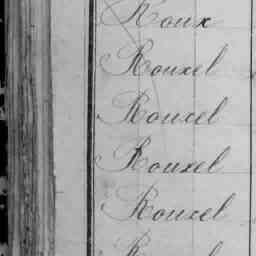 Roux
Rouxel
Roucel
Rouxel
Roucel